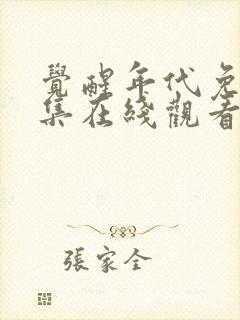 覺醒年代免
集在綫觀看
張家全